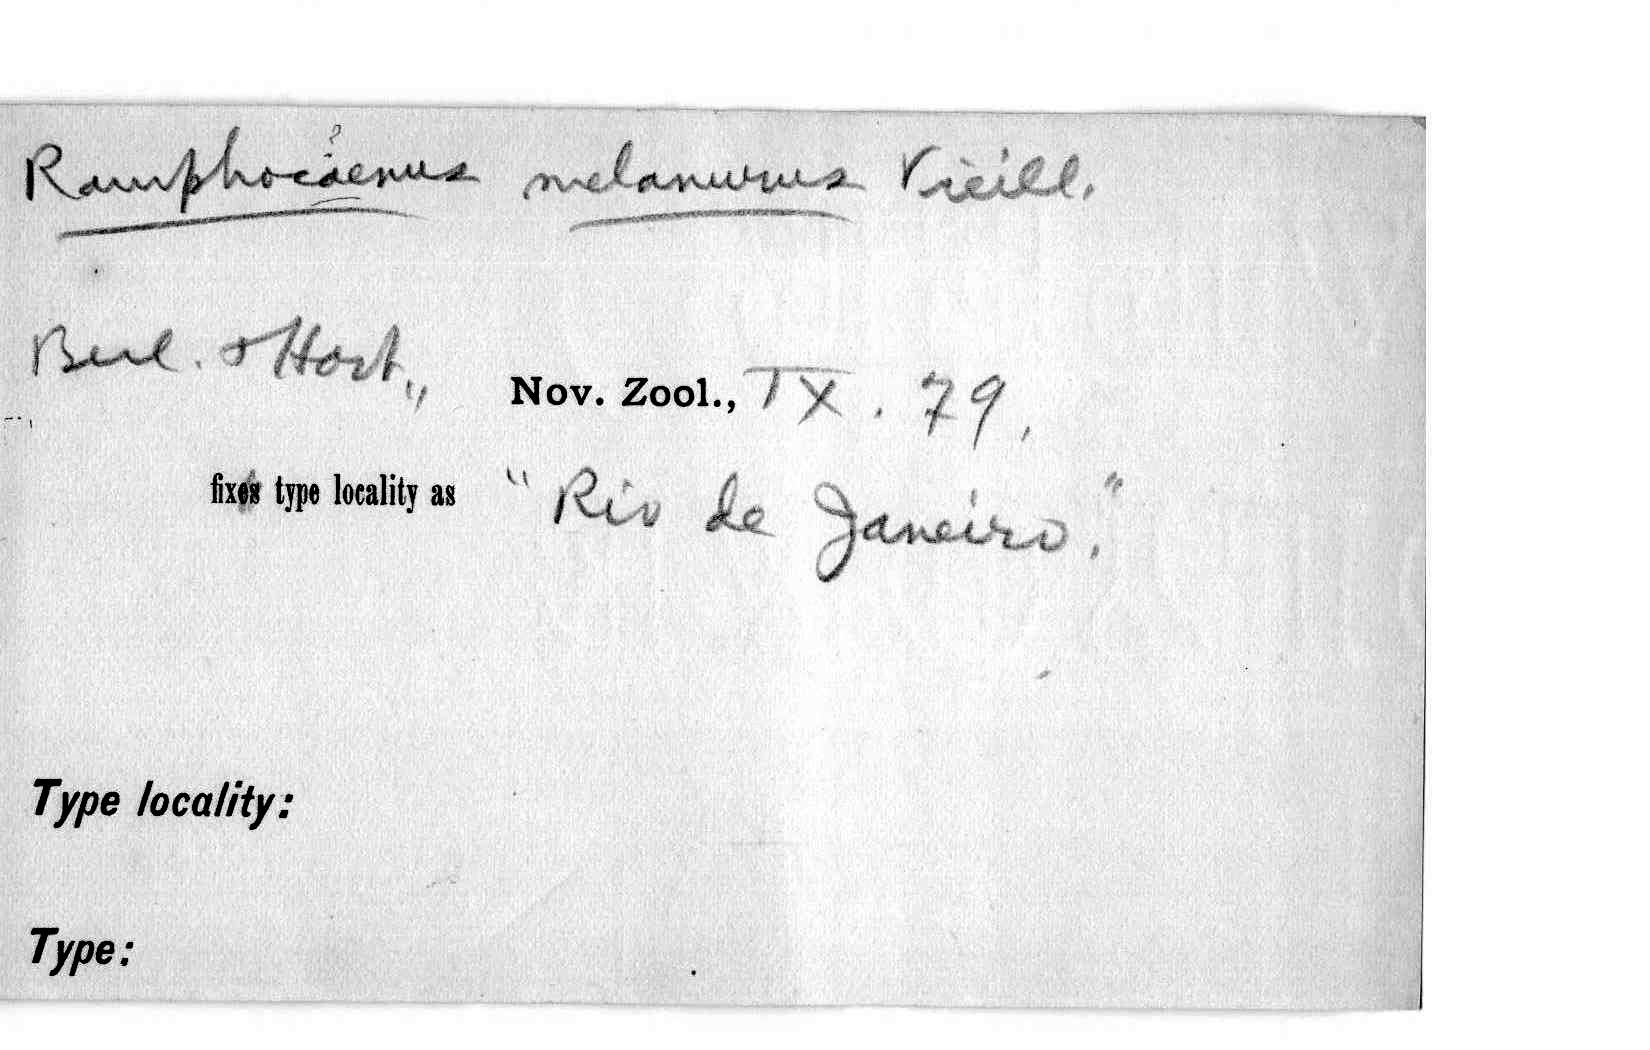 Ramphocaenus melanurus Vieill.
Berl. & Hart., Nov. Zool., IX. 79,
fix type locality as "Rio de Janeiro."
Type locality:
Type: